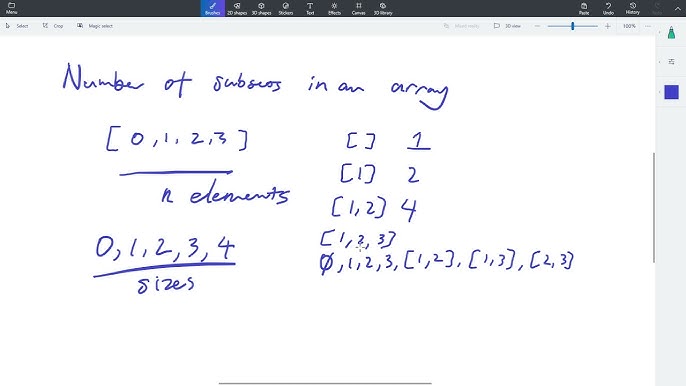 Menu
Brushes
2D shapes
3D shapes
Stickers
Text
Effects
Canvas
3D library
Paste
Undo
History
Redo
Select
Magic select
Mixed reality
3D view
100%
Number of subsets in an array
[ 0, 1, 2, 3 ]
n elements
0, 1, 2, 3, 4
sizes
[ ] 1
[1] 2
[1, 2] 4
[1, 2, 3]
∅, 1, 2, 3, [1, 2], [1, 3], [2, 3]